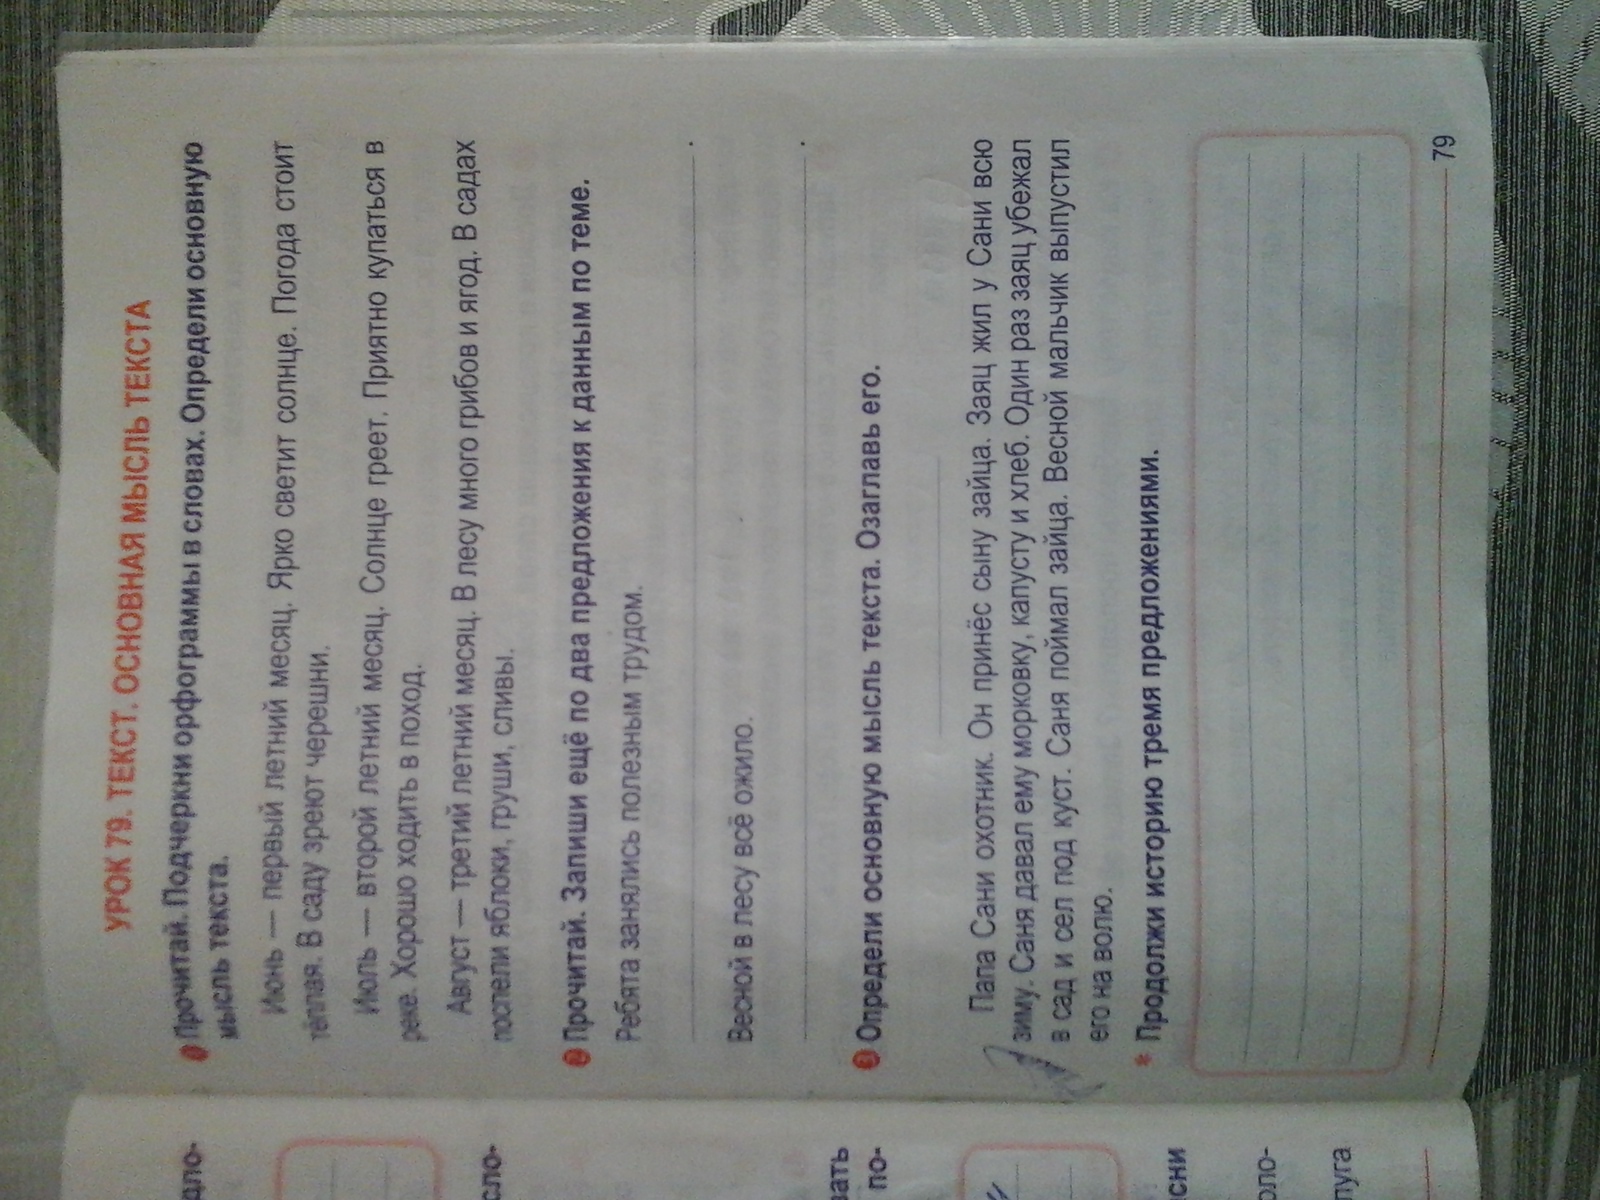 УРОК 79. ТЕКСТ. ОСНОВНАЯ МЫСЛЬ ТЕКСТА
1 Прочитай. Подчеркни орфограммы в словах. Определи основную
мысль текста.
Июнь — первый летний месяц. Ярко светит солнце. Погода стоит
тёплая. В саду зреют черешни.
Июль — второй летний месяц. Солнце греет. Приятно купаться в
реке. Хорошо ходить в поход.
Август — третий летний месяц. В лесу много грибов и ягод. В садах
поспели яблоки, груши, сливы.
2 Прочитай. Запиши ещё по два предложения к данным по теме.
Ребята занялись полезным трудом.
.
Весной в лесу всё ожило.
.
3 Определи основную мысль текста. Озаглавь его.
Папа Сани охотник. Он принёс сыну зайца. Заяц жил у Сани всю
зиму. Саня давал ему морковку, капусту и хлеб. Один раз заяц убежал
в сад и сел под куст. Саня поймал зайца. Весной мальчик выпустил
его на волю.
* Продолжи историю тремя предложениями.
79
дло-
сло-
вать
по-
сни
оло-
луга